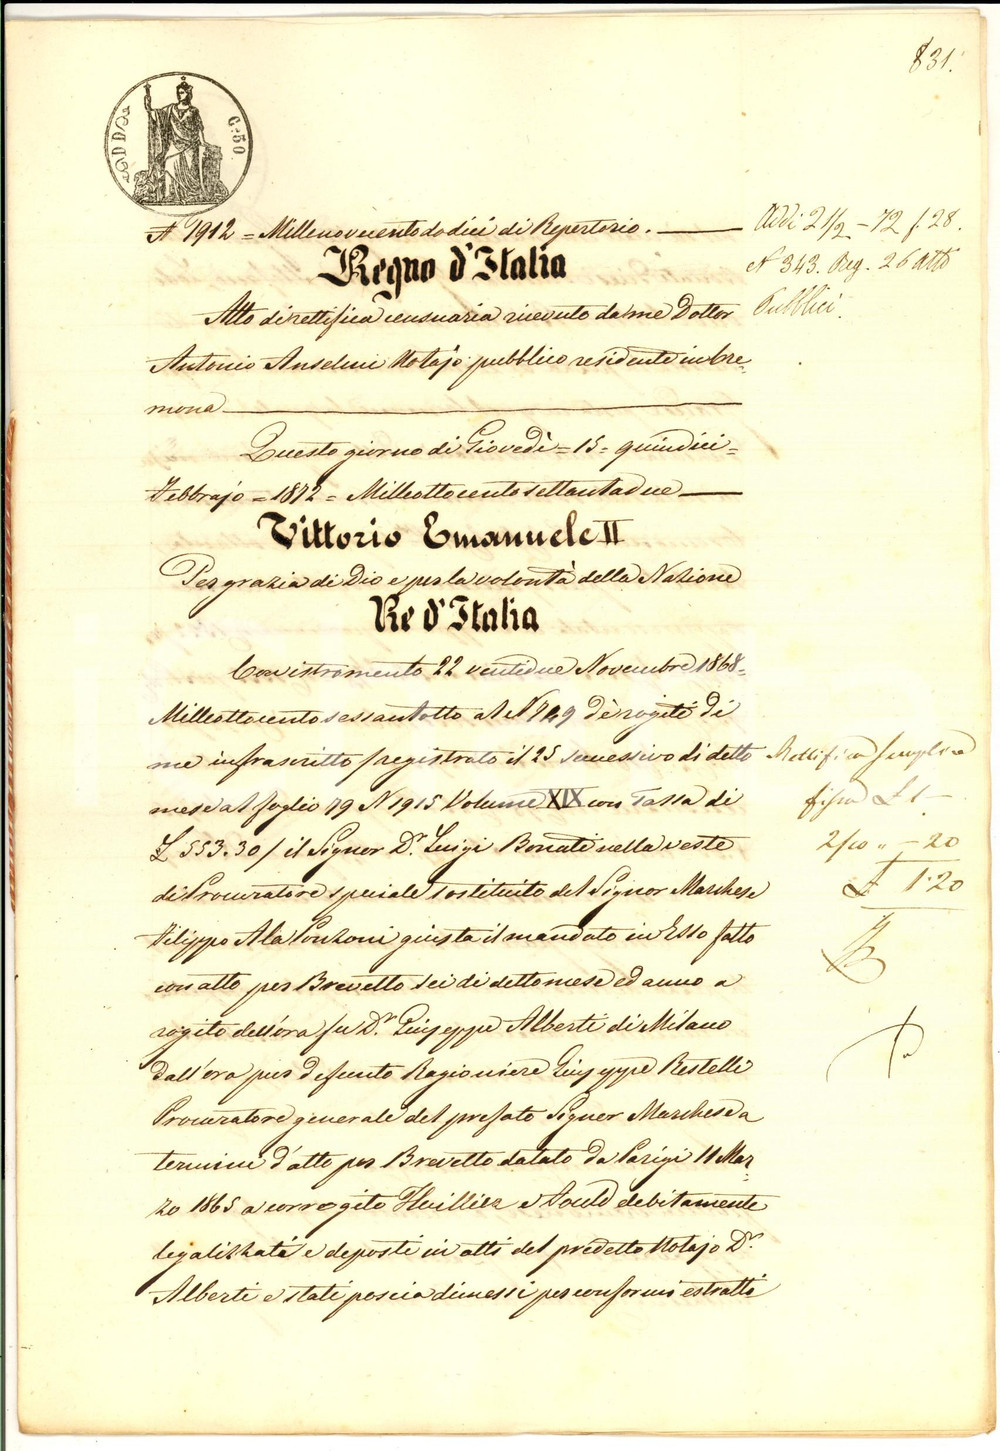 831.
C. 50
N 1912 = Millenovecentododici di Repertorio.
Addi 21/2 - 72 f. 28.
N 343. Reg. 26 Atti
Pubblici.
Regno d'Italia
Atto di rettifica censuaria ricevuto da me Dottor
Antonio Anselmi Notajo pubblico residente in Cre-
mona
Questo giorno di Giovedì = 15 = quindici =
Febbrajo = 1872 = Milleottocentosettantadue
Vittorio Emanuele II
Per grazia di Dio e per la volontà della Nazione
Re d'Italia
Con istromento 22 ventidue Novembre 1868=
Milleottocentosessantotto al N 729 di rogiti di
me infrascritto / registrato il 25 successivo di detto
mese al foglio 79 N 1915 Volume XIX con Tassa di
£ 553.30 / il Signor Dr. Luigi Bonati nella veste
di Procuratore speciale sostituito del Signor Marchese
Filippo Ala Ponzoni giusta il mandato in Esso fatto
con atto per Brevetto sei di detto mese ed anno a
rogito dell'ora fu Dr. Giuseppe Alberti di Milano
dall'ora pur defunto Ragioniere Giuseppe Restelli
Procuratore generale del prefato Signor Marchese a
termini d'atto per Brevetto datato da Parigi 11 Mar-
zo 1865 a corrogito Huillier e debitamente
legalizzati e deposti in atti del predetto Notajo Dr.
Alberti e stati poscia dimessi per conformi estratti
Rettifica semplice
fissa £ 1 -
2/10 " - 20
£ 1.20